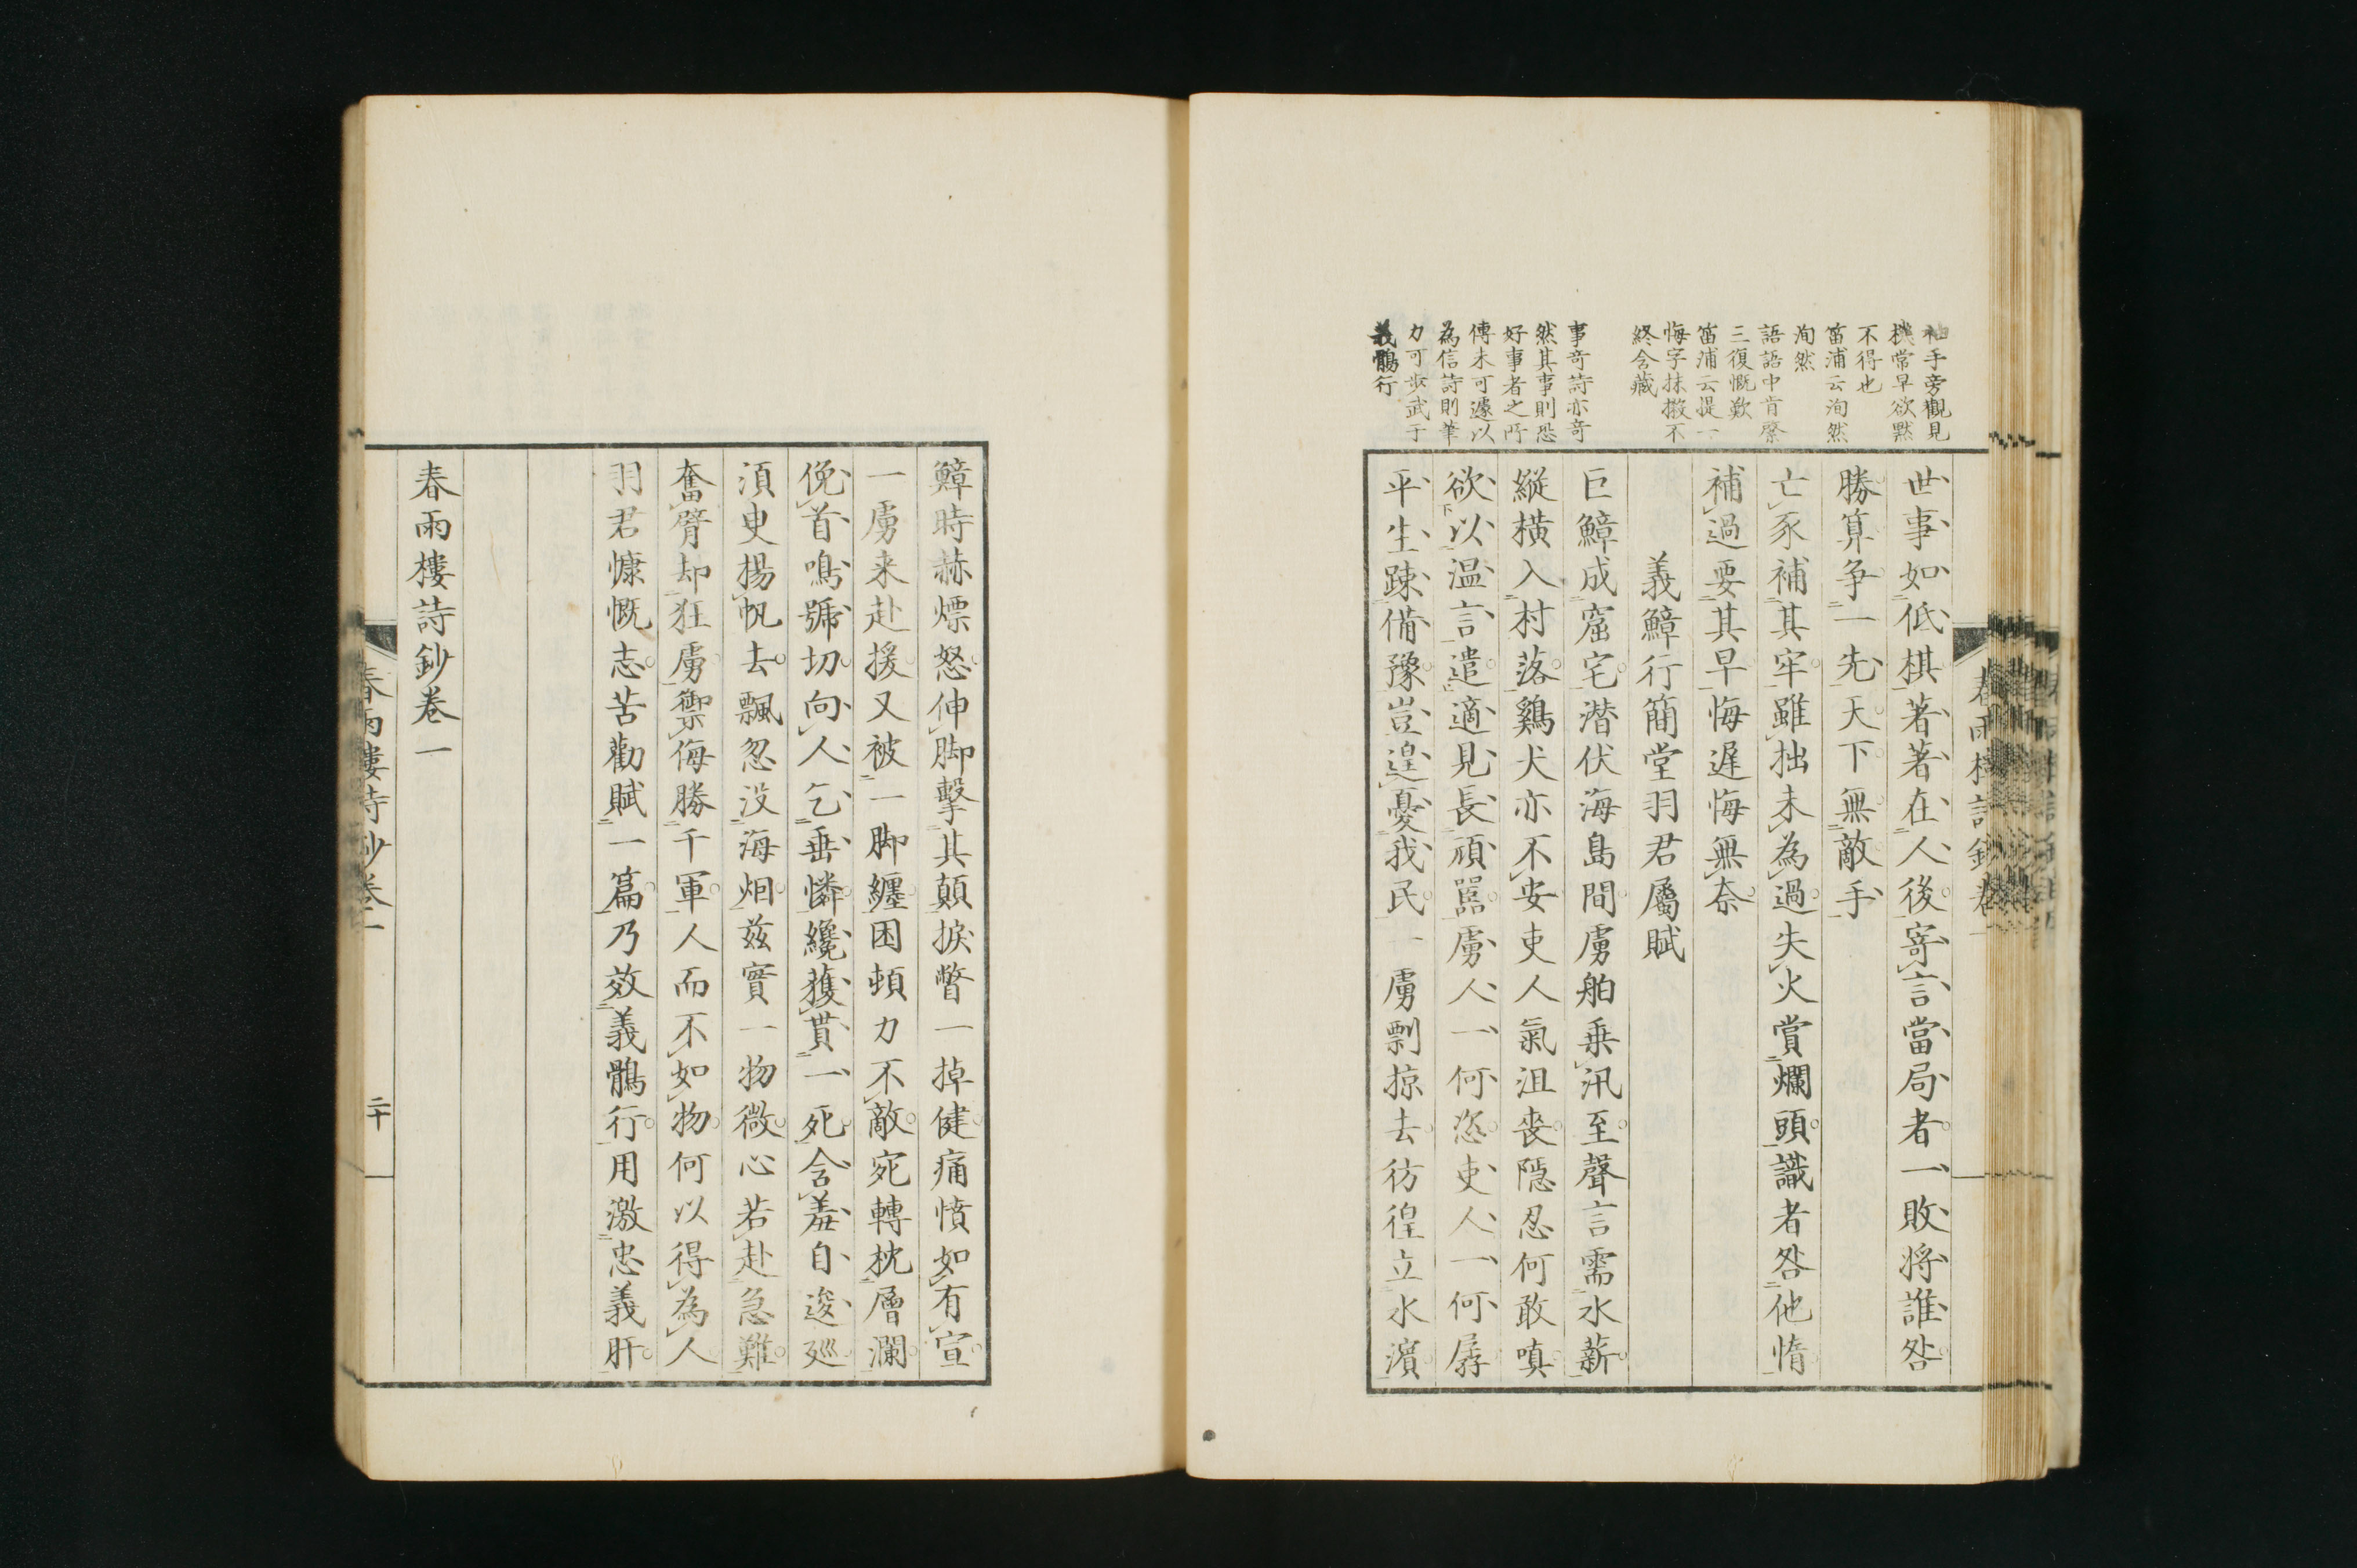 袖手旁觀見
機常早欲黙
不得也
笛浦云洵然
洵然
語語中肯綮
三復慨歎
笛浦云提一
悔字抹摋不
終含藏
事奇詩亦奇
然其事則恐
好事者之所
傳未可遽以
為信詩則筆
力可步武于
義鶻行
世事如低棋著著在人後寄言當局者一敗將誰咎
勝算争一先天下無敵手
亡豕補其牢雖拙未為過失火賞爛頭識者咎他惰
補過要其早悔遲悔無奈
義鱆行簡堂羽君屬賦
巨鱆成窟宅潜伏海島間虜舶乗汛至聲言需水薪
縱横入村落鷄犬亦不安吏人氣沮喪隠忍何敢嗔
欲以温言遣適見長頑嚚虜人一何恣吏人一何孱
平生踈備豫豈遑憂我民一虜剽掠去彷徨立水濵
鱆時赫熛怒伸脚擊其顛捩瞥一掉健痛憤如有宣
一虜来赴援又被一脚纏困頓力不敵宛轉枕層瀾
俛首鳴號切向人乞垂憐纔獲貰一死含羞自逡廵
須臾揚帆去飄忽没海烟茲實一物微心若赴急難
奮臂却狂虜禦侮勝千軍人而不如物何以得為人
羽君慷慨志苦勸賦一篇乃效義鶻行用激忠義肝
春雨樓詩鈔卷一
春雨樓詩鈔卷一
二十